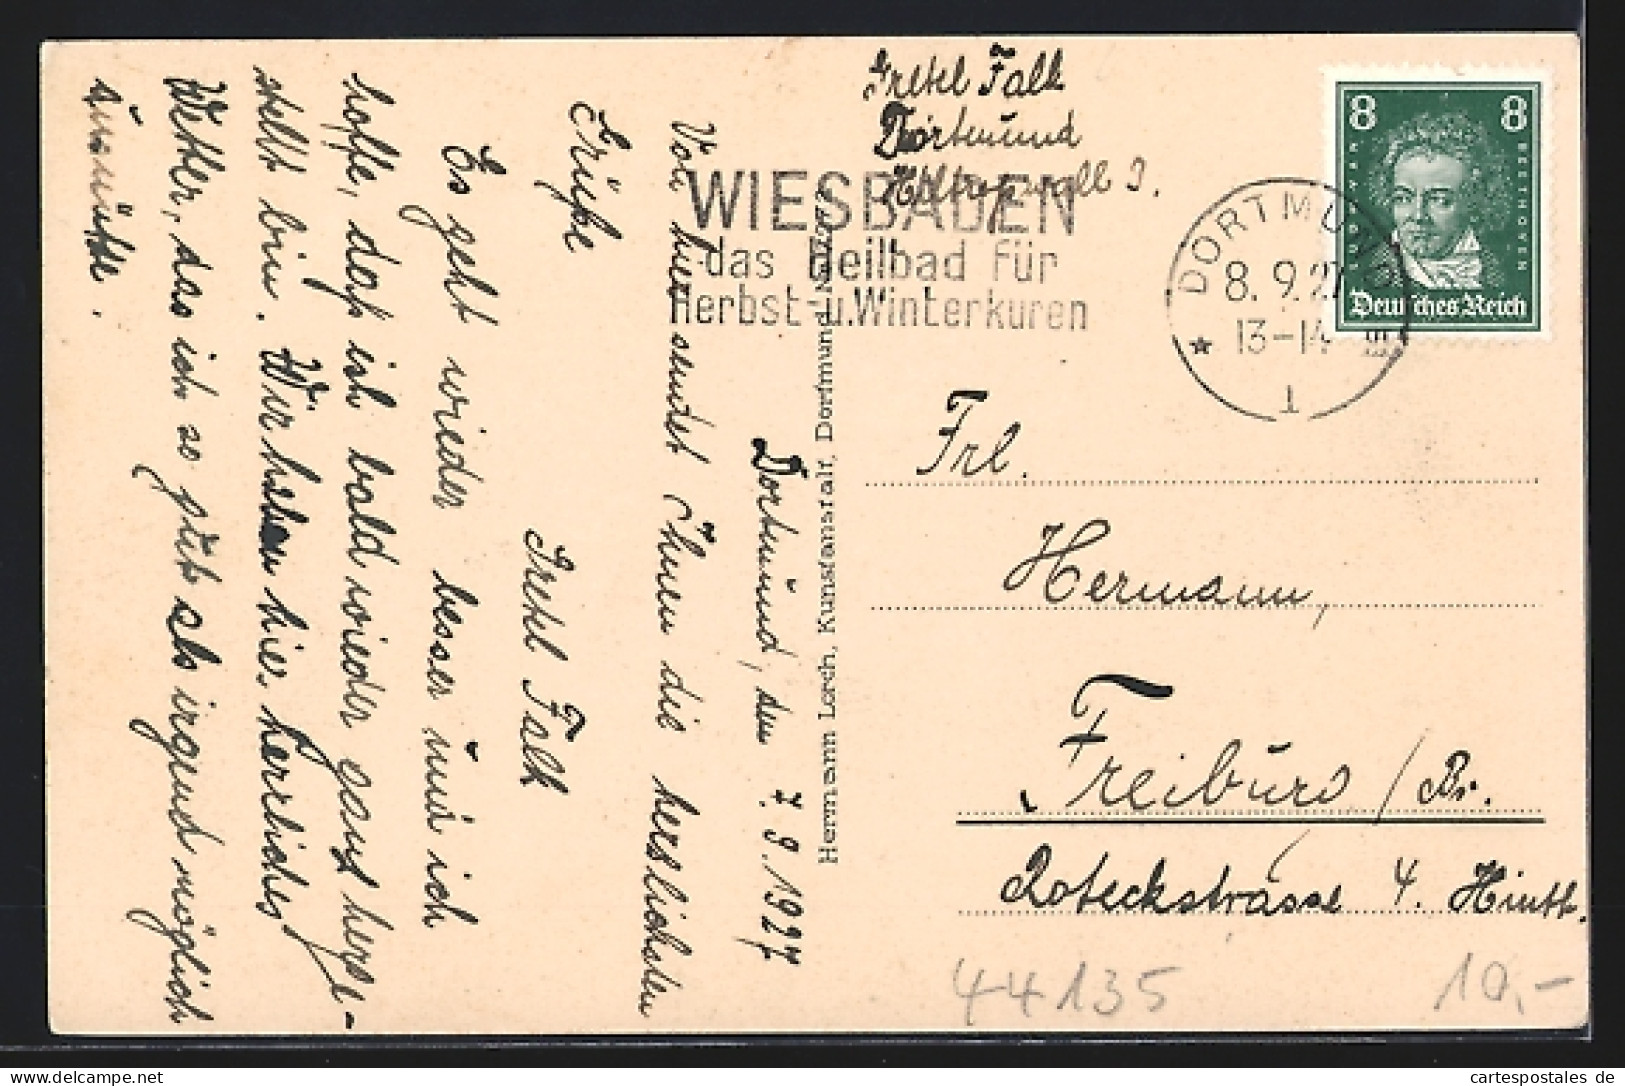 Gretel Falk
Dortmund
WIESBADEN
das Heilbad für
Herbst- u. Winterkuren
DORTMUND
8.9.27
13-14
1
8 8
LUDWIG VAN BEETHOVEN
Deutsches Reich
Frl.
Hermann,
Freiburg / Br.
Roteckstrasse 4. Hintth.
44135
10,-
Herrmann Lorch, Kunstanstalt, Dortmund
Dortmund, den 7.9.1927
Von hier sendet Ihnen die herzlichsten
Grüße
Gretel Falk
Es geht wieder besser und ich
hoffe, daß ich bald wieder ganz herge-
stellt bin. Wir haben hier herrliches
Wetter, das ich so gut als irgend möglich
ausnütze.
delcampe.net
cartespostales de